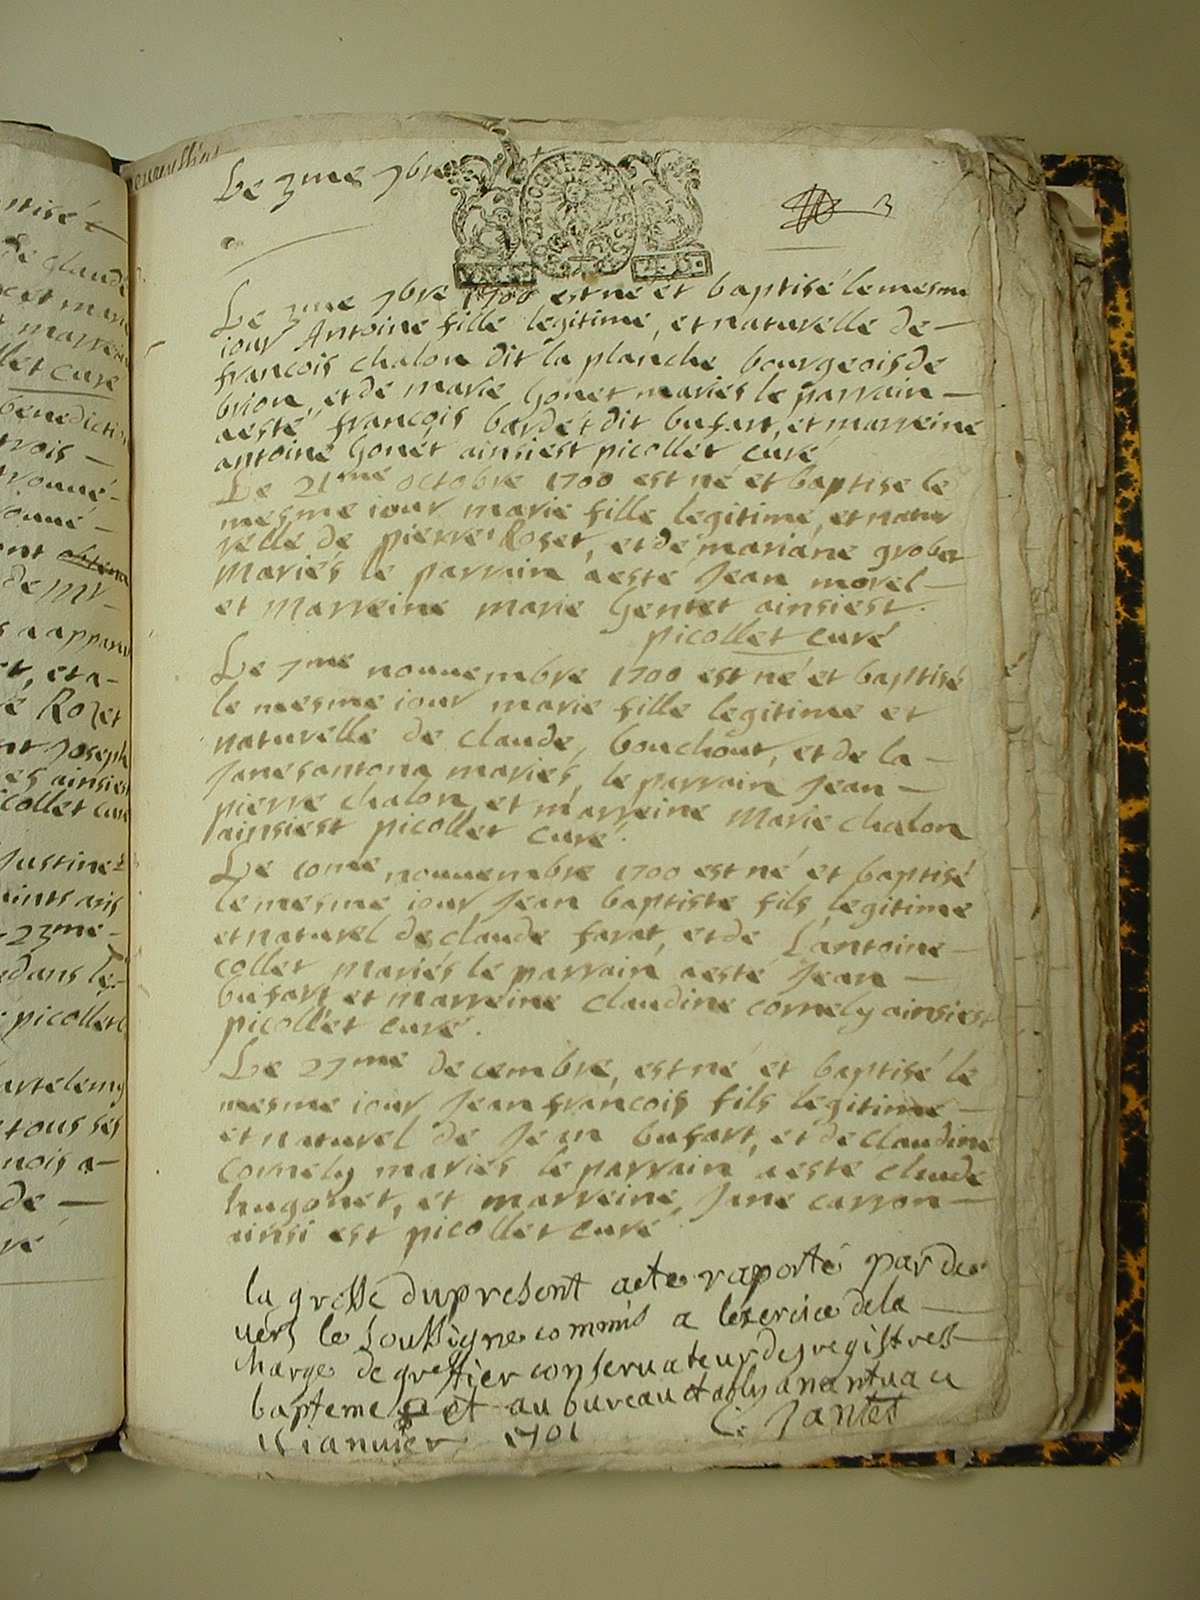 Le 3me 7bre
3
Le 3me 7bre 1700 est né et baptisé le mesme
iour Antoine fille legitime, et naturelle de
francois chalon dit la planche bourgeois de
brion, et de marie gonet mariés le parrain
a esté françois bardet dit bufart, et marreine
antoine gonet ainsi est picollet curé
Le 21me octobre 1700 est né et baptise le
mesme iour marie fille legitime, et natur
relle de pierre Roset, et de mariane grober
Mariés le parrain a esté Jean morel
et Marreine marie gentet ainsi est
picollet curé
Le 7me nouuembre 1700 est né et baptisé
le mesme iour marie fille legitime et
naturelle de claude, bouchout, et de la
Jane santona mariés, le parrain Jean
pierre chalon, et marreine Marie chalon
ainsi est picollet curé
Le 10me nouuembre 1700 est né et baptisé
le mesme iour Jean baptiste fils legitime
et naturel de claude farat, et de L'antoine
collet mariés le parrain a esté Jean
bufart et marreine claudine cornely ainsi est
picollet curé.
Le 27me decembre, est né et baptisé le
mesme iour Jean françois fils legitime
et naturel de Jean bufart, et de claudine
Cornely mariés le parrain a esté claude
hugonet, et marreine, Jane carron
ainsi est picollet curé
la grosse du present acte raporté par de
uers le soussigne commis a lexercice de la
charge de greffier conseruateur des registres
bapteme et au bureau etably a nantua ce
15 ianuier 1701 C. Jantet
ptisé
de claude
et marie
marrein
llet curé
benediction
trois
de mr
a apparu
et, et a
Rozet
Joseph
es ainsi est
icollet curé
Justine
23me
dans le
picollet
artelemy
tous ses
mois a
de
ré